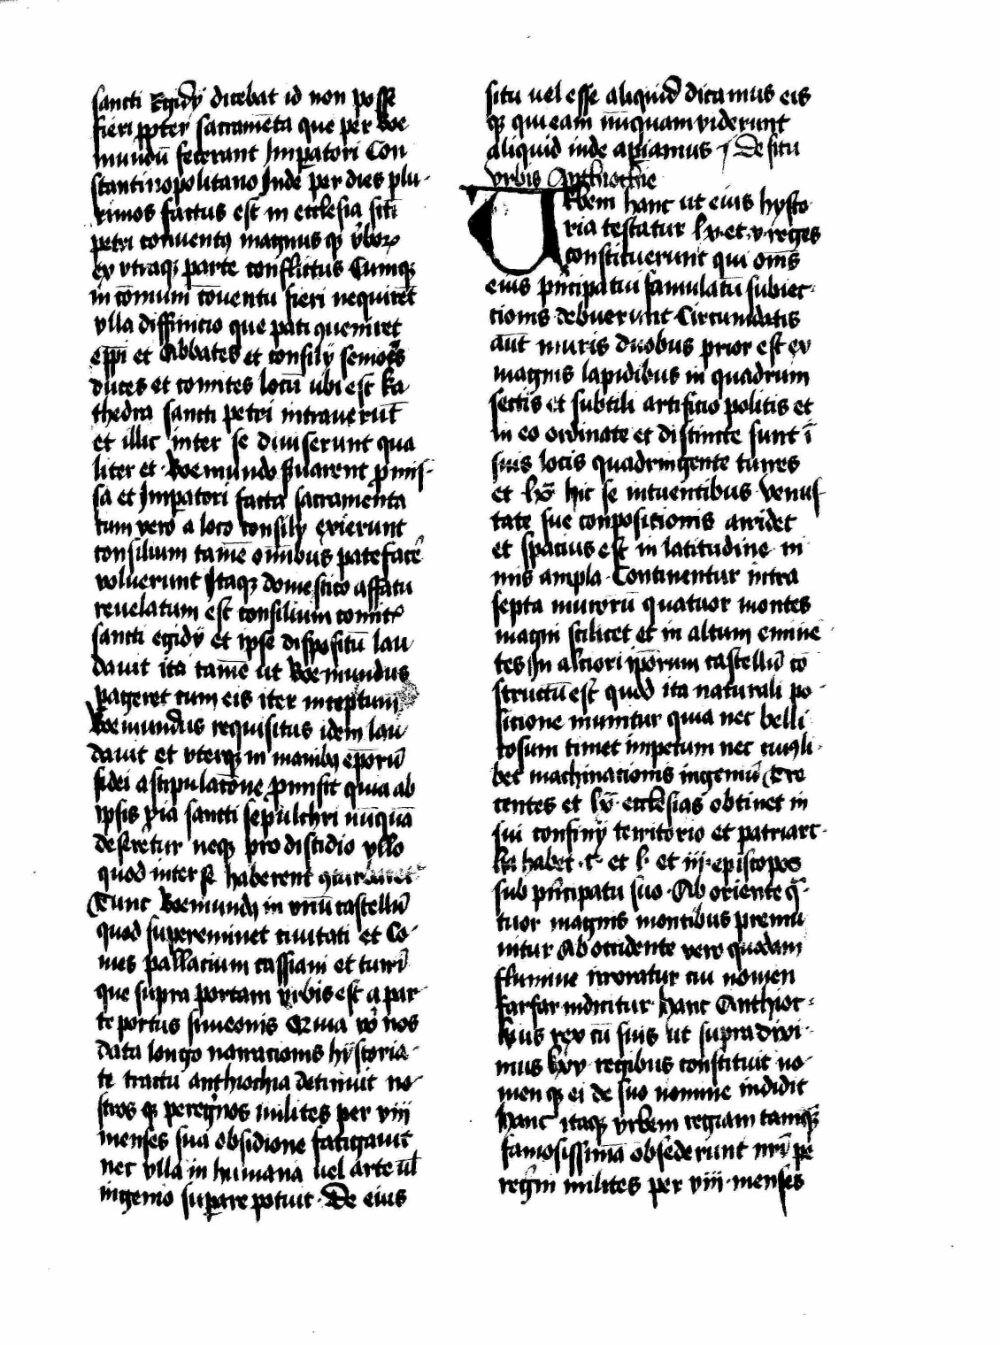 sancti Egidij dicebat id non posse
fieri ppter sacramēta que per Boe
mundū fecerant Imperatori Con
stantinopolitano Inde per dies plu
rimos factus est in ecclesia scti
petri conuentꝯ magnus qꝫ vborꝫ
ex vtraqꝫ parte conflictus Cumqꝫ
in cōmuni cōuentu fieri nequiret
vlla diffinicio que paci queniret
epi et Abbates et consilij seniores
duces et comites locū ubi est ka
thedra sancti petri intrauerūt
et illic inter se diuiserunt qua
liter et Boemundo suarent pmis
sa et Impatori facta sacramenta
tum vero a loco consilij exierunt
consilium tamē omībus patefacē
voluerunt Itaqꝫ domestico affatu
reuelatum est consilium comitꝫ
sancti egidij et ipse dispositū lau
dauit ita tamē ut Boemundus
pageret cum eis iter inceptum
Boemundus requisitus idem lau
dauit et vterqꝫ in manibꝫ epōrū
fidei astipulatōne pmisit quia ab
ipsis via sancti sepulchri nūquā
deseretur neqꝫ pro discidio vllo
quod inter se haberent
Tunc Boemundꝫ in vnū castellū
quod supereminet ciuitati et Co
mes pallacium cassiani et turrī
que supra portam vrbis est a par
te portus simeonis Quia vō nos
data longo narracionis hystoria
te tractu anthiochia detinuit no
stros qꝫ peregnos milites per viii
menses sua obsidione fatigauit
nec vlla in humana uel arte ul
ingenio supare potuit De eius
situ uel esse aliquid dicamus eis
qꝫ qui eam nūquam viderunt
aliquid inde apiamus De situ
vrbis Anthiochie
Urbem hanc ut eius hysto
ria testatur lxx et v reges
constituerunt qui oms
eius pncipatui famulatū subiec
cionis debuerunt Circumdatis
aut muris duobus prior est ex
magnis lapidibus in quadrum
sectis et subtili artificio politis et
in eo ordinate et distincte sunt ī
suis locis quadringente turres
et lx hic se intuentibus venus
tate sue conpositionis arridet
et spacius est in latitudine ni
mis ampla Continentur intra
septa murorū quatuor montes
magni scilicet et in altum emine
tes In alciori iporum castellū co
structū est quod ita naturali po
sitione munitur quia nec belli
cosum timet impetum nec cuiꝯli
bet machinationis ingeniū Tre
centes et lx ecclesias obtinet in
sui confinij territorio et patriarc
ha habet c et l et iii episcopos
sub pncipatu suo Ab oriente q
tuor magnis montibus premu
nitur Ab occidente vero quodam
flumine irroratur cui nomen
farfar indicitur hanc Anthioc
hus rex cū suis ut supra dixi
mus lxxv regibus constituit no
men qꝫ ei de suo nomine indidit
Hanc itaqꝫ vrbem regiam tamqꝫ
famosissimā obsederunt nri pe
regni milites per viii menses